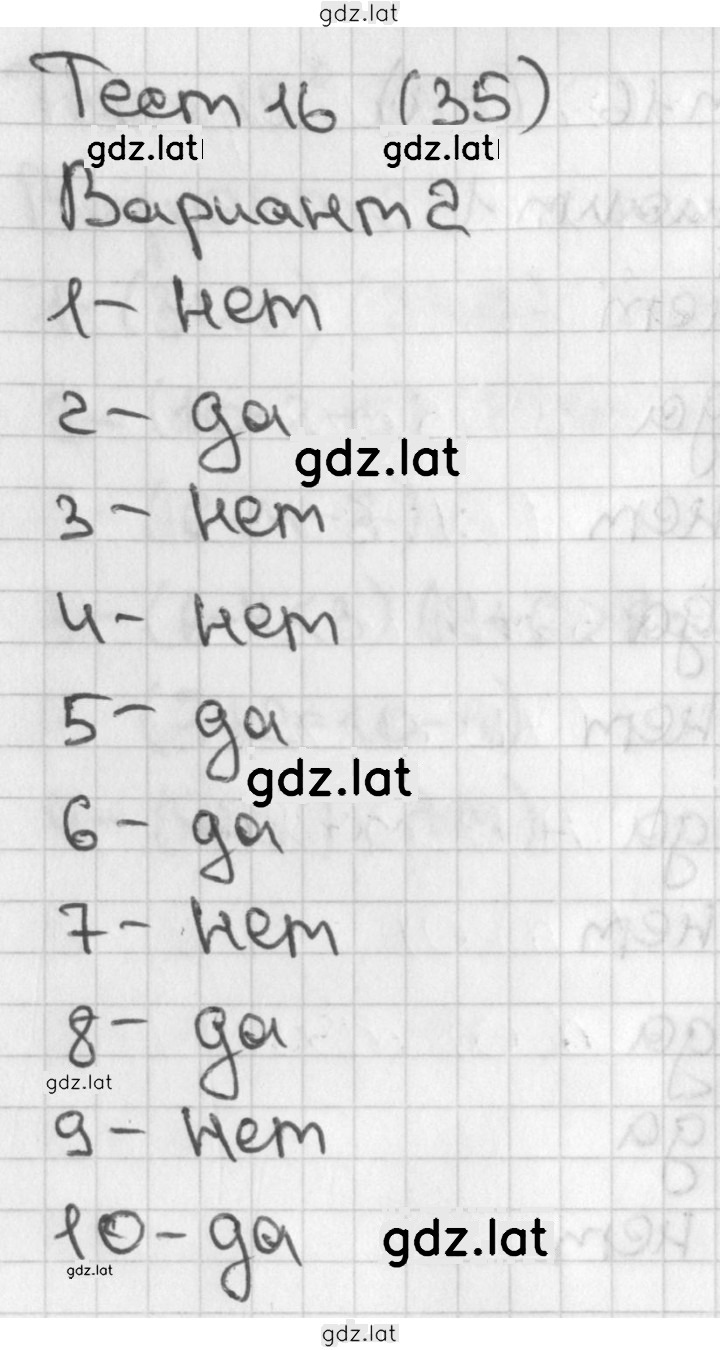 gdz.lat
Тест 16 (35)
gdz.lat gdz.lat
Вариант 2
1- нет
2- да
gdz.lat
3- нет
4- нет
5- да
gdz.lat
6- да
7- нет
8- да
gdz.lat
9- нет
10- да gdz.lat
gdz.lat
gdz.lat